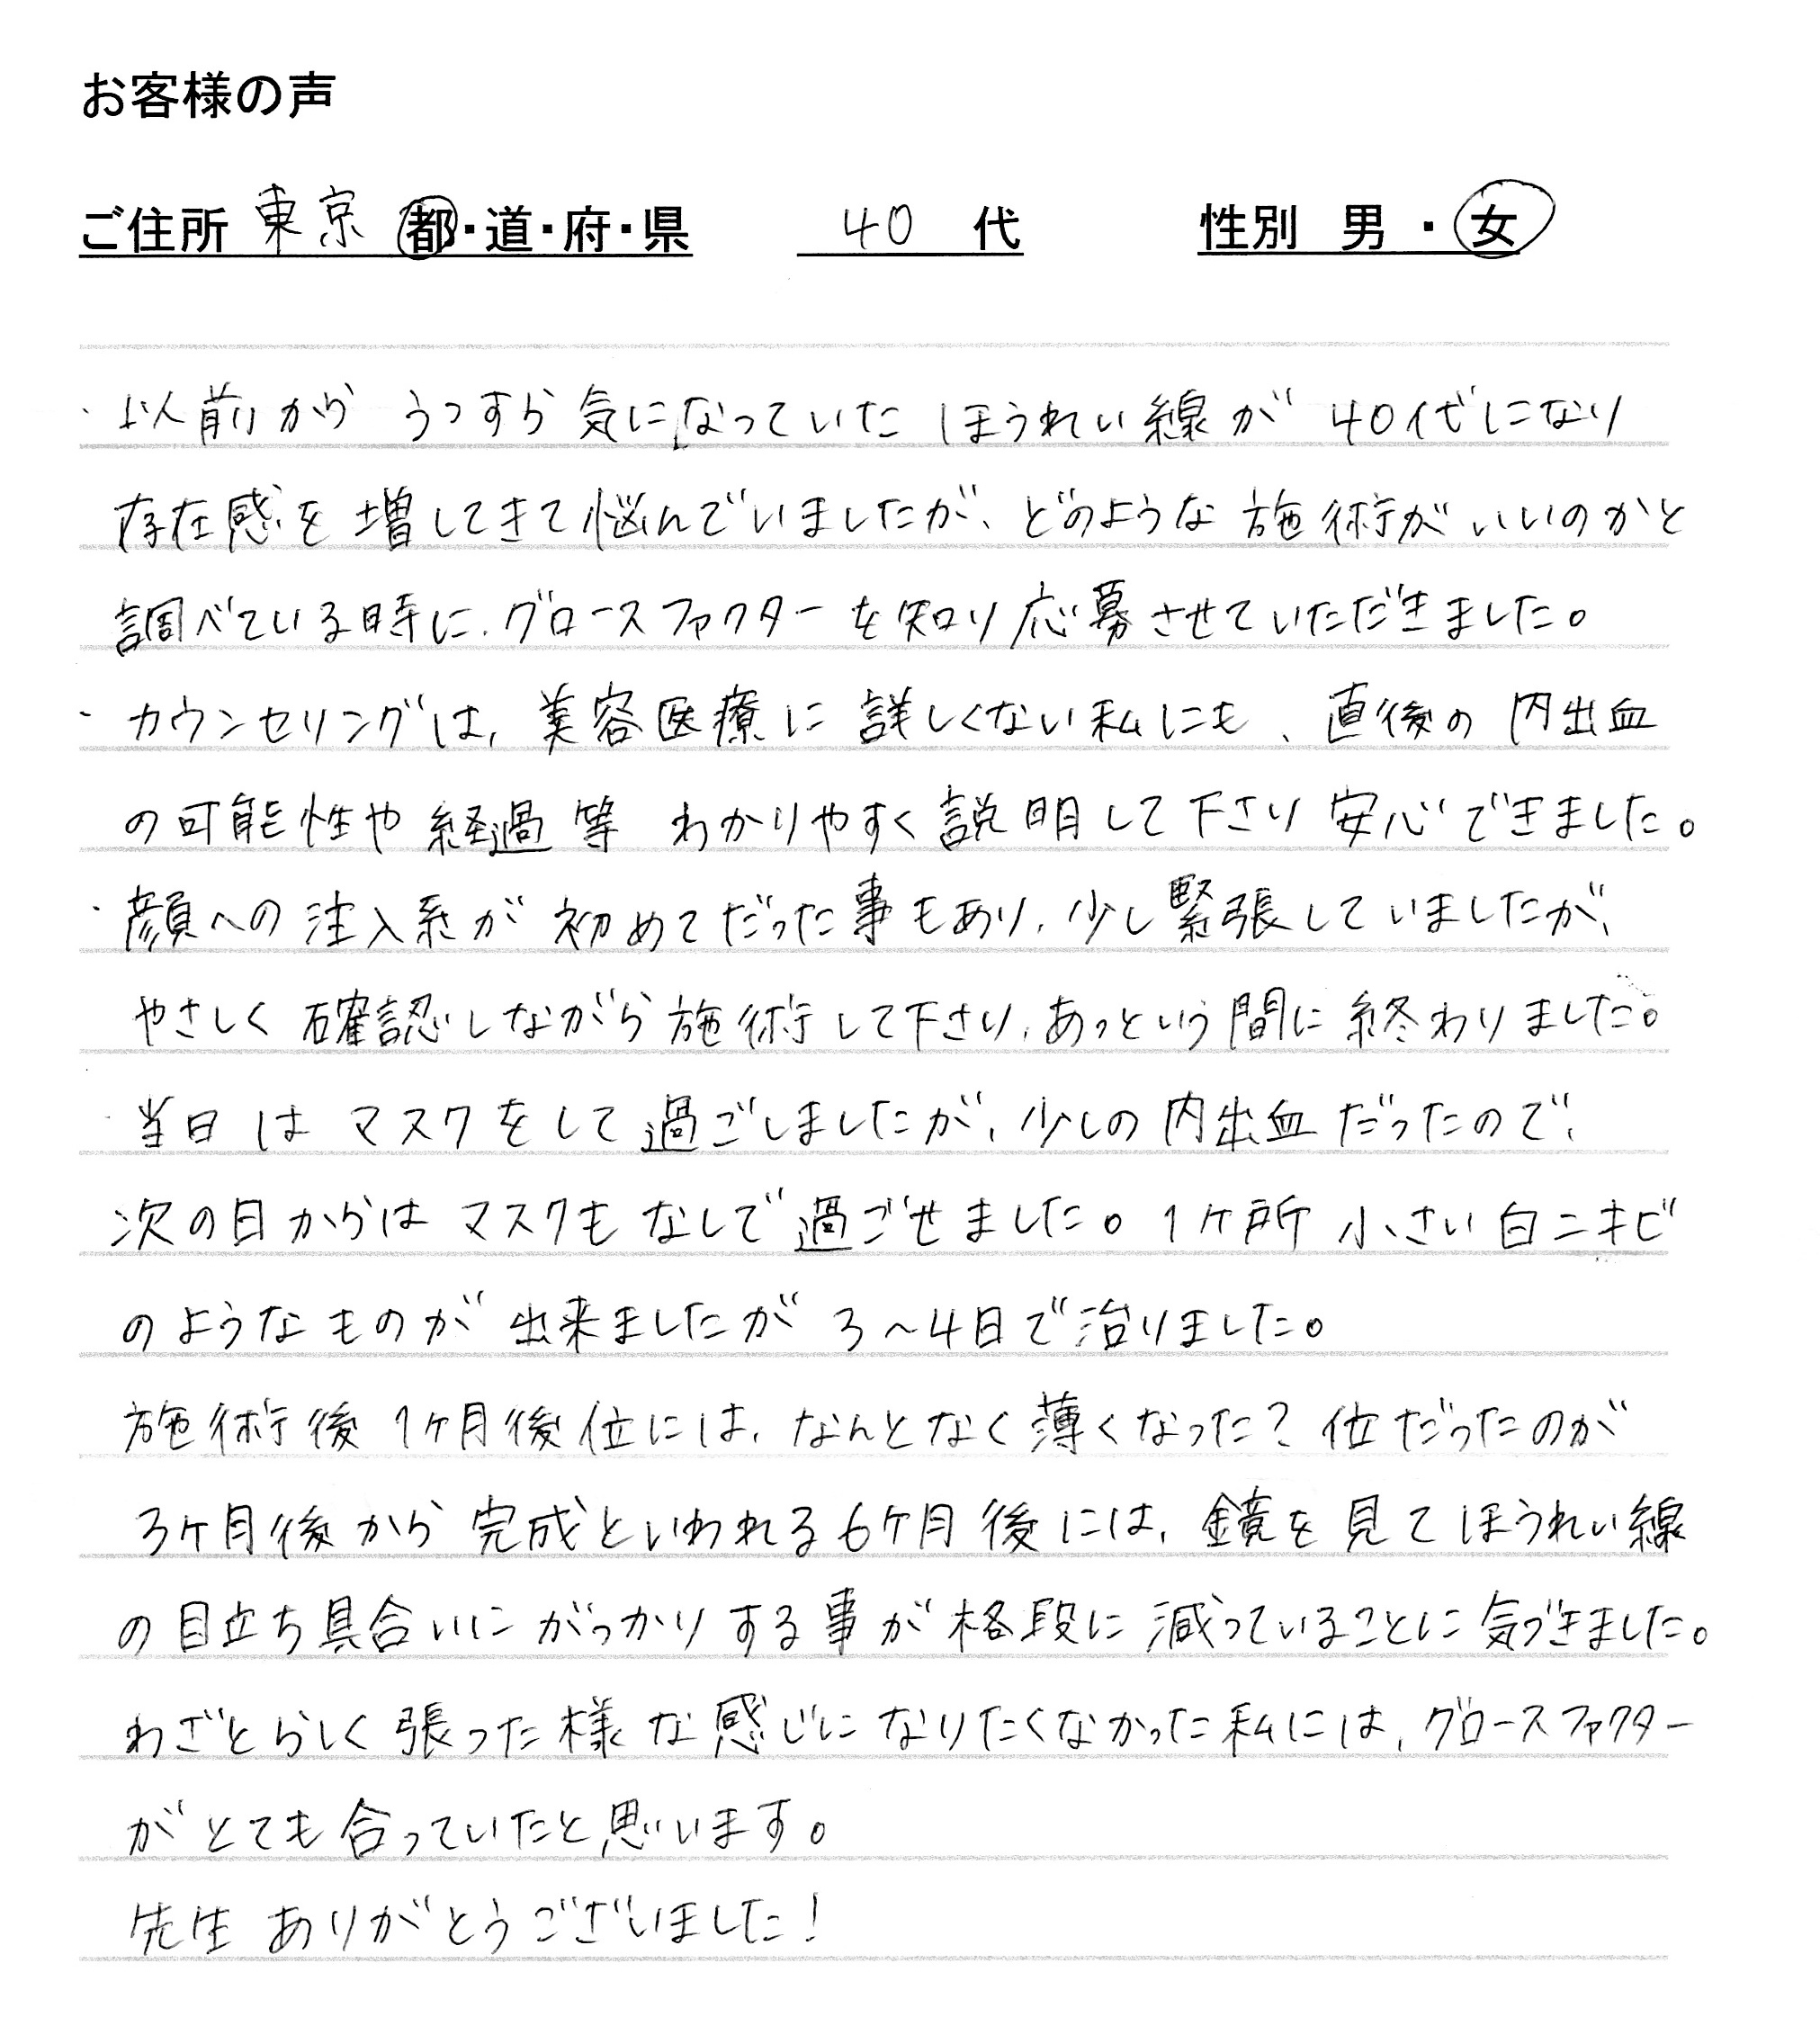 お客様の声
ご住所 東京 都・道・府・県 40 代 性別 男 ・ 女
・以前から うっすら気になっていた ほうれい線が 40代になり
存在感を増してきて悩んでいましたが、どのような施術がいいのかと
調べている時に、グロースファクターを知り応募させていただきました。
・カウンセリングは、美容医療に詳しくない私にも、直後の内出血
の可能性や経過等 わかりやすく説明して下さり安心できました。
・顔への注入系が初めてだった事もあり、少し緊張していましたが、
やさしく確認しながら施術して下さり、あっという間に終わりました。
・当日はマスクをして過ごしましたが、少しの内出血だったので、
次の日からはマスクもなしで過ごせました。1ケ所小さい白ニキビ
のようなものが出来ましたが3〜4日で治りました。
施術後1ケ月後位には、なんとなく薄くなった?位だったのが
3ケ月後から完成といわれる6ケ月後には、鏡を見てほうれい線
の目立ち具合いにがっかりする事が格段に減っていることに気づきました。
わざとらしく張った様な感じになりたくなかった私には、グロースファクター
がとても合っていたと思います。
先生ありがとうございました!